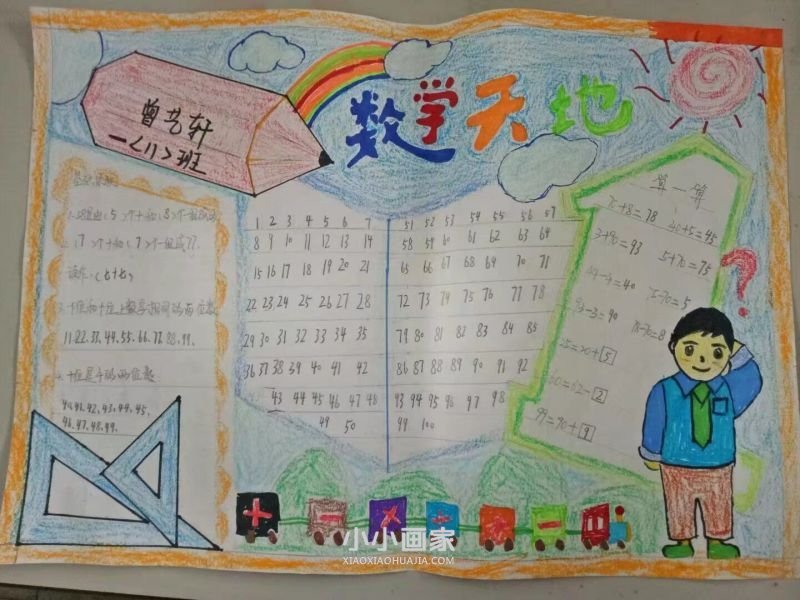 数学天地
曾艺轩
一<1>班
1 2 3 4 5 6 7
8 9 10 11 12 13 14
15 16 17 18 19 20 21
22 23 24 25 26 27 28
29 30 31 32 33 34 35
36 37 38 39 40 41 42
43 44 45 46 47 48
49 50
51 52 53 54 55 56 57
58 59 60 61 62 63 64
65 66 67 68 69 70 71
72 73 74 75 76 77 78
79 80 81 82 83 84 85
86 87 88 89 90 91 92
93 94 95 96 97 98
99 100
11.22.33.44.55.66.77.88.99.
4.十位是4的两位数:
40.41.42.43.44.45.
46.47.48.49.
算一算
70+8=78
40+5=45
3+90=93
5+70=75
44-4=40
75-70=5
93-3=90
78-70=8
25=20+5
60=62-2
99=90+9
?
小小画家
XIAOXIAOHUAJIA.COM